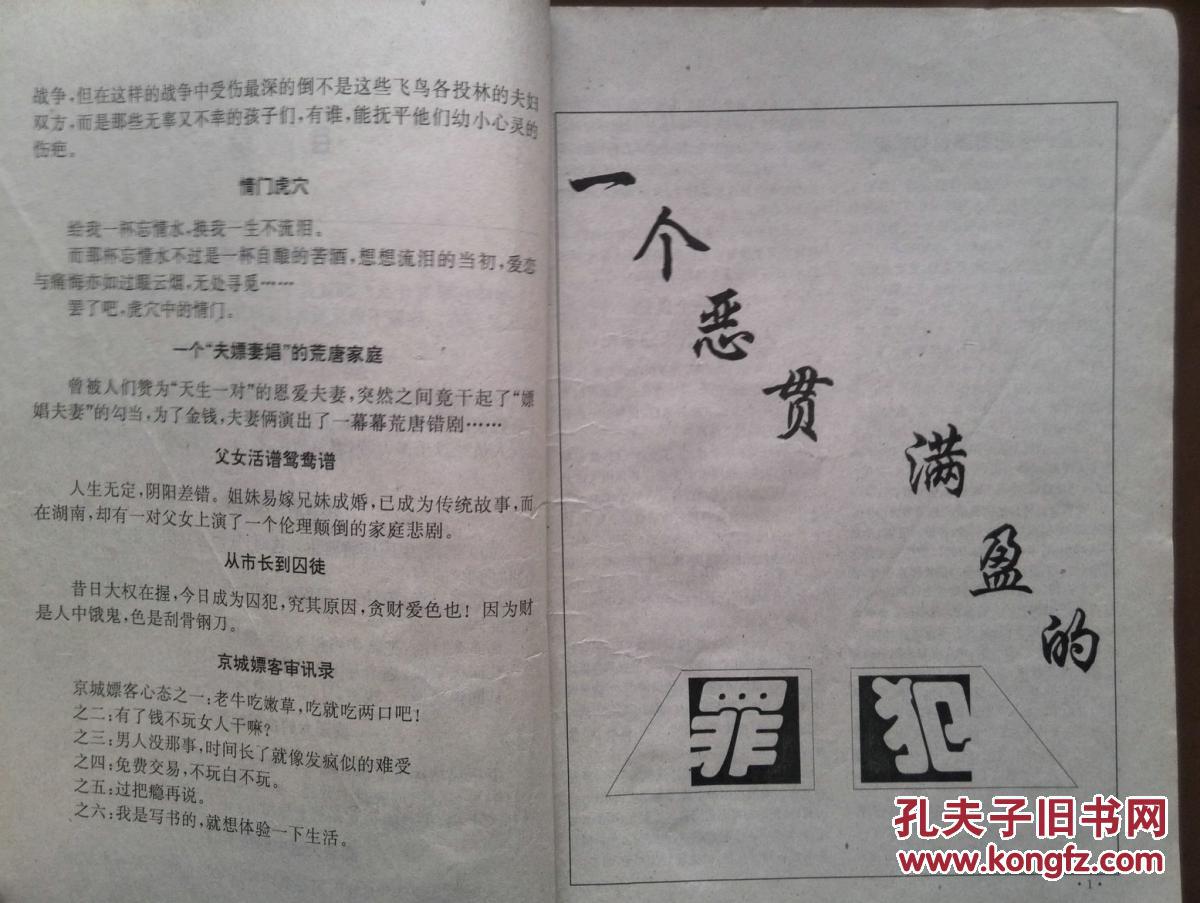 战争,但在这样的战争中受伤最深的倒不是这些飞鸟各投林的夫妇
双方,而是那些无辜又不幸的孩子们,有谁,能抚平他们幼小心灵的
伤疤。
情门虎穴
给我一杯忘情水,换我一生不流泪。
而那杯忘情水不过是一杯自酿的苦酒,想想流泪的当初,爱恋
与痛悔亦如过眼云烟,无处寻觅……
罢了吧,虎穴中的情门。
一个“夫嫖妻娼”的荒唐家庭
曾被人们赞为“天生一对”的恩爱夫妻,突然之间竟干起了“嫖
娼夫妻”的勾当,为了金钱,夫妻俩演出了一幕幕荒唐错剧……
父女活谱鸳鸯谱
人生无定,阴阳差错。姐妹易嫁兄妹成婚,已成为传统故事,而
在湖南,却有一对父女上演了一个伦理颠倒的家庭悲剧。
从市长到囚徒
昔日大权在握,今日成为囚犯,究其原因,贪财爱色也!因为财
是人中饿鬼,色是刮骨钢刀。
京城嫖客审讯录
京城嫖客心态之一:老牛吃嫩草,吃就吃两口吧!
之二:有了钱不玩女人干嘛?
之三:男人没那事,时间长了就像发疯似的难受
之四:免费交易,不玩白不玩。
之五:过把瘾再说。
之六:我是写书的,就想体验一下生活。
一个恶贯满盈的
罪犯
·1·
孔夫子旧书网
www.kongfz.com